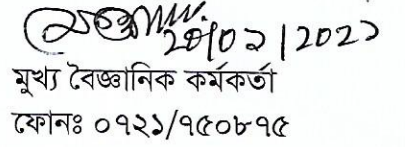 20/02/2022
মুখ্য বৈজ্ঞানিক কর্মকর্তা
ফোনঃ ০৭২১/৭৫০৮৭৫